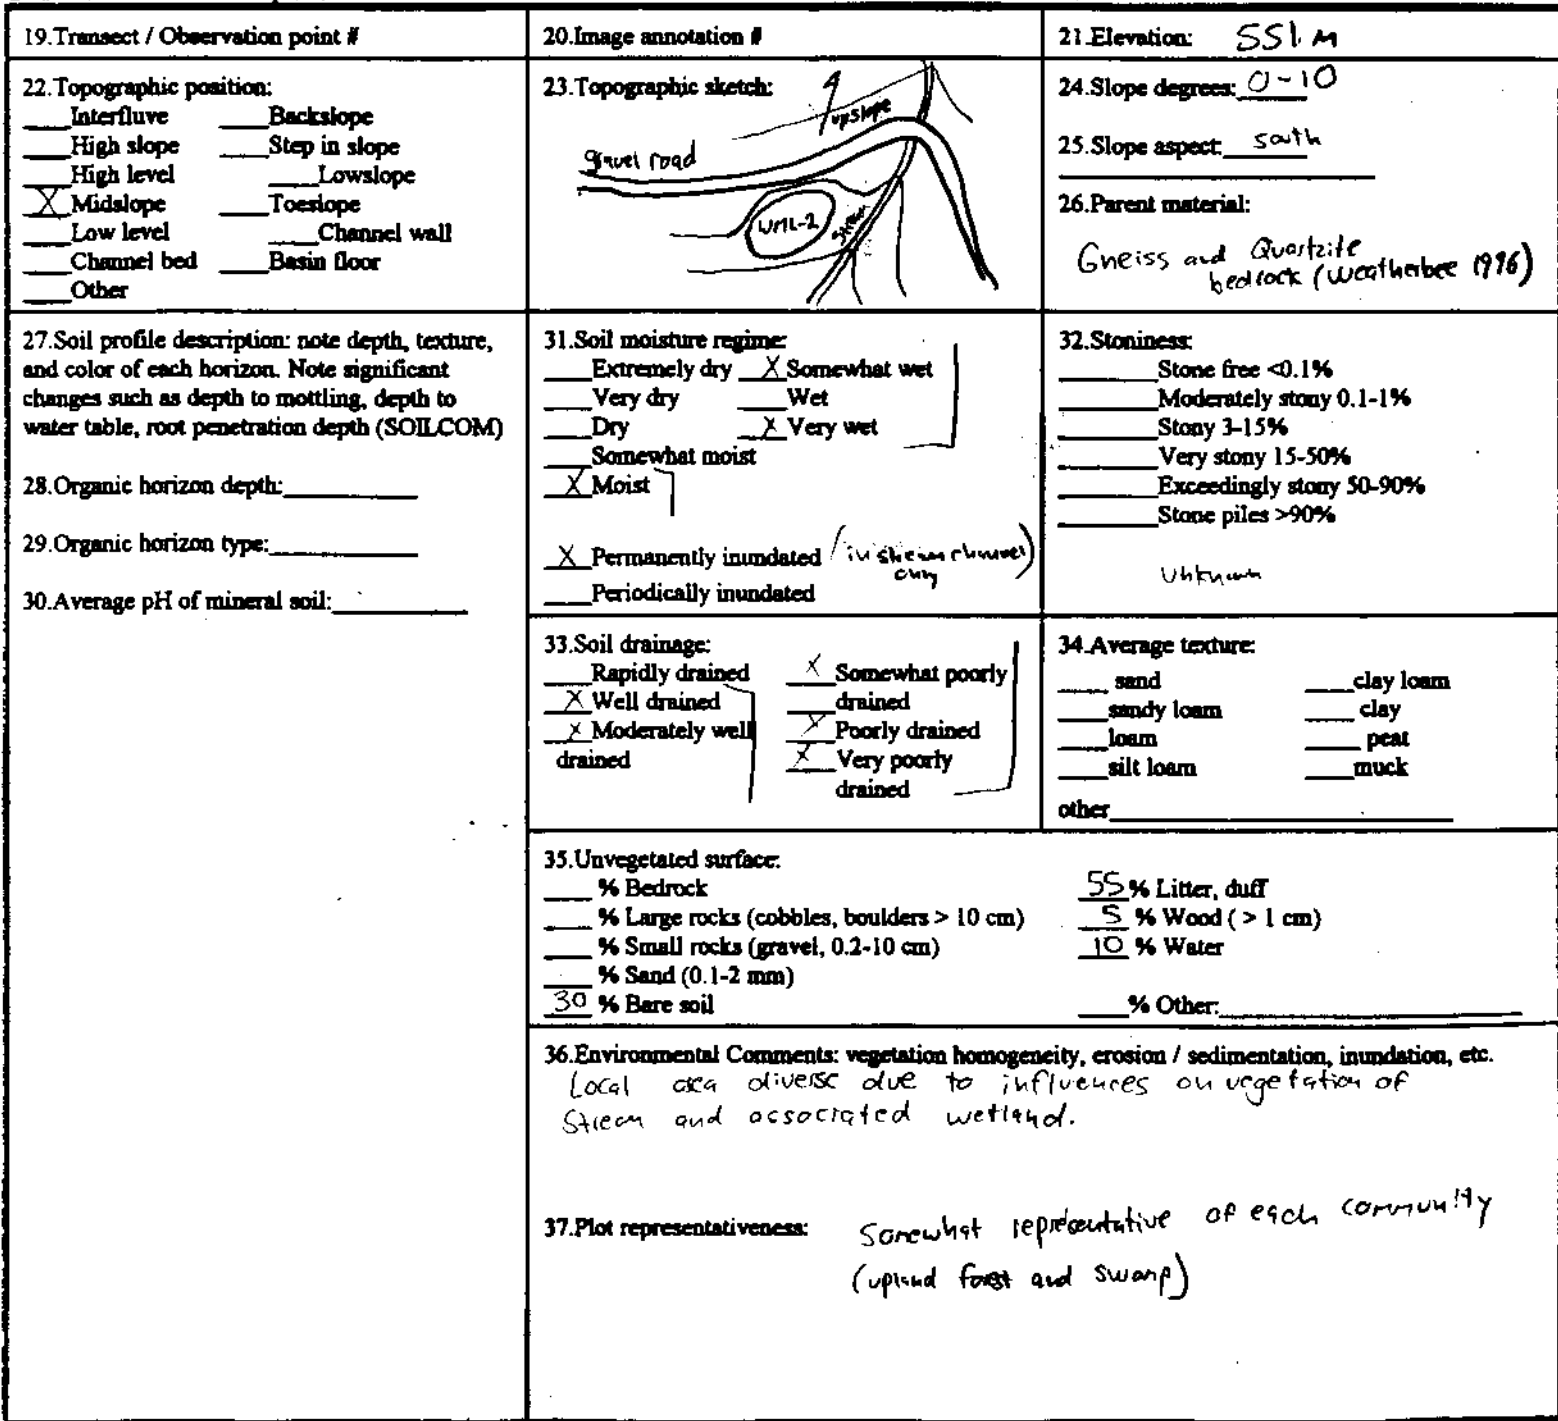 19.Transect / Observation point #
20.Image annotation #
21.Elevation: 551. M
22.Topographic position:
___Interfluve ___Backslope
___High slope ___Step in slope
___High level ___Lowslope
_X_Midslope ___Toeslope
___Low level ___Channel wall
___Channel bed ___Basin floor
___Other
23.Topographic sketch:
upslope
gravel road
WML-2
stream
24.Slope degrees: 0-10
25.Slope aspect: south
26.Parent material:
Gneiss and Quartzite
bedrock (Weatherbee 1996)
27.Soil profile description: note depth, texture,
and color of each horizon. Note significant
changes such as depth to mottling, depth to
water table, root penetration depth (SOILCOM)
28.Organic horizon depth:_________
29.Organic horizon type:__________
30.Average pH of mineral soil:_________
31.Soil moisture regime:
___Extremely dry _X_Somewhat wet
___Very dry ___Wet
___Dry _X_Very wet
___Somewhat moist
_X_Moist
_X_Permanently inundated (in stream channel)
only
___Periodically inundated
32.Stoniness:
______Stone free <0.1%
______Moderately stony 0.1-1%
______Stony 3-15%
______Very stony 15-50%
______Exceedingly stony 50-90%
______Stone piles >90%
Unknown
33.Soil drainage:
___Rapidly drained _X_Somewhat poorly
_X_Well drained ___drained
_X_Moderately well _X_Poorly drained
drained _X_Very poorly
drained
34.Average texture:
___ sand ___clay loam
___sandy loam ___ clay
___loam ___ peat
___silt loam ___muck
other_________________
35.Unvegetated surface:
___ % Bedrock 55% Litter, duff
___ % Large rocks (cobbles, boulders > 10 cm) 5 % Wood ( > 1 cm)
___ % Small rocks (gravel, 0.2-10 cm) 10 % Water
___ % Sand (0.1-2 mm)
30 % Bare soil ___% Other:_______________
36.Environmental Comments: vegetation homogeneity, erosion / sedimentation, inundation, etc.
Local area diverse due to influences on vegetation of
Stream and associated wetland.
37.Plot representativeness: Somewhat representative of each community
(upland forest and swamp)